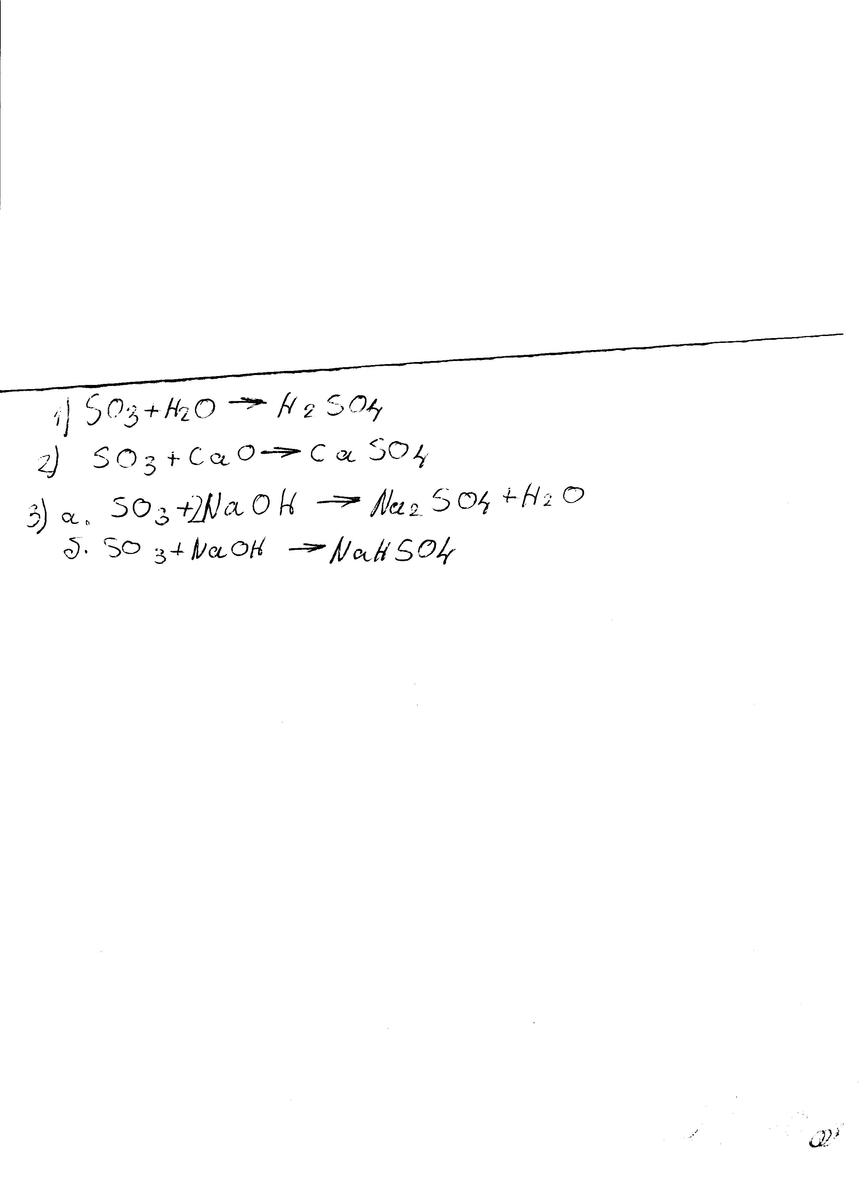 1) SO3+H2O → H2SO4
2) SO3+CaO → CaSO4
3) а. SO3+2NaOH → Na2SO4+H2O
б. SO3+NaOH → NaHSO4